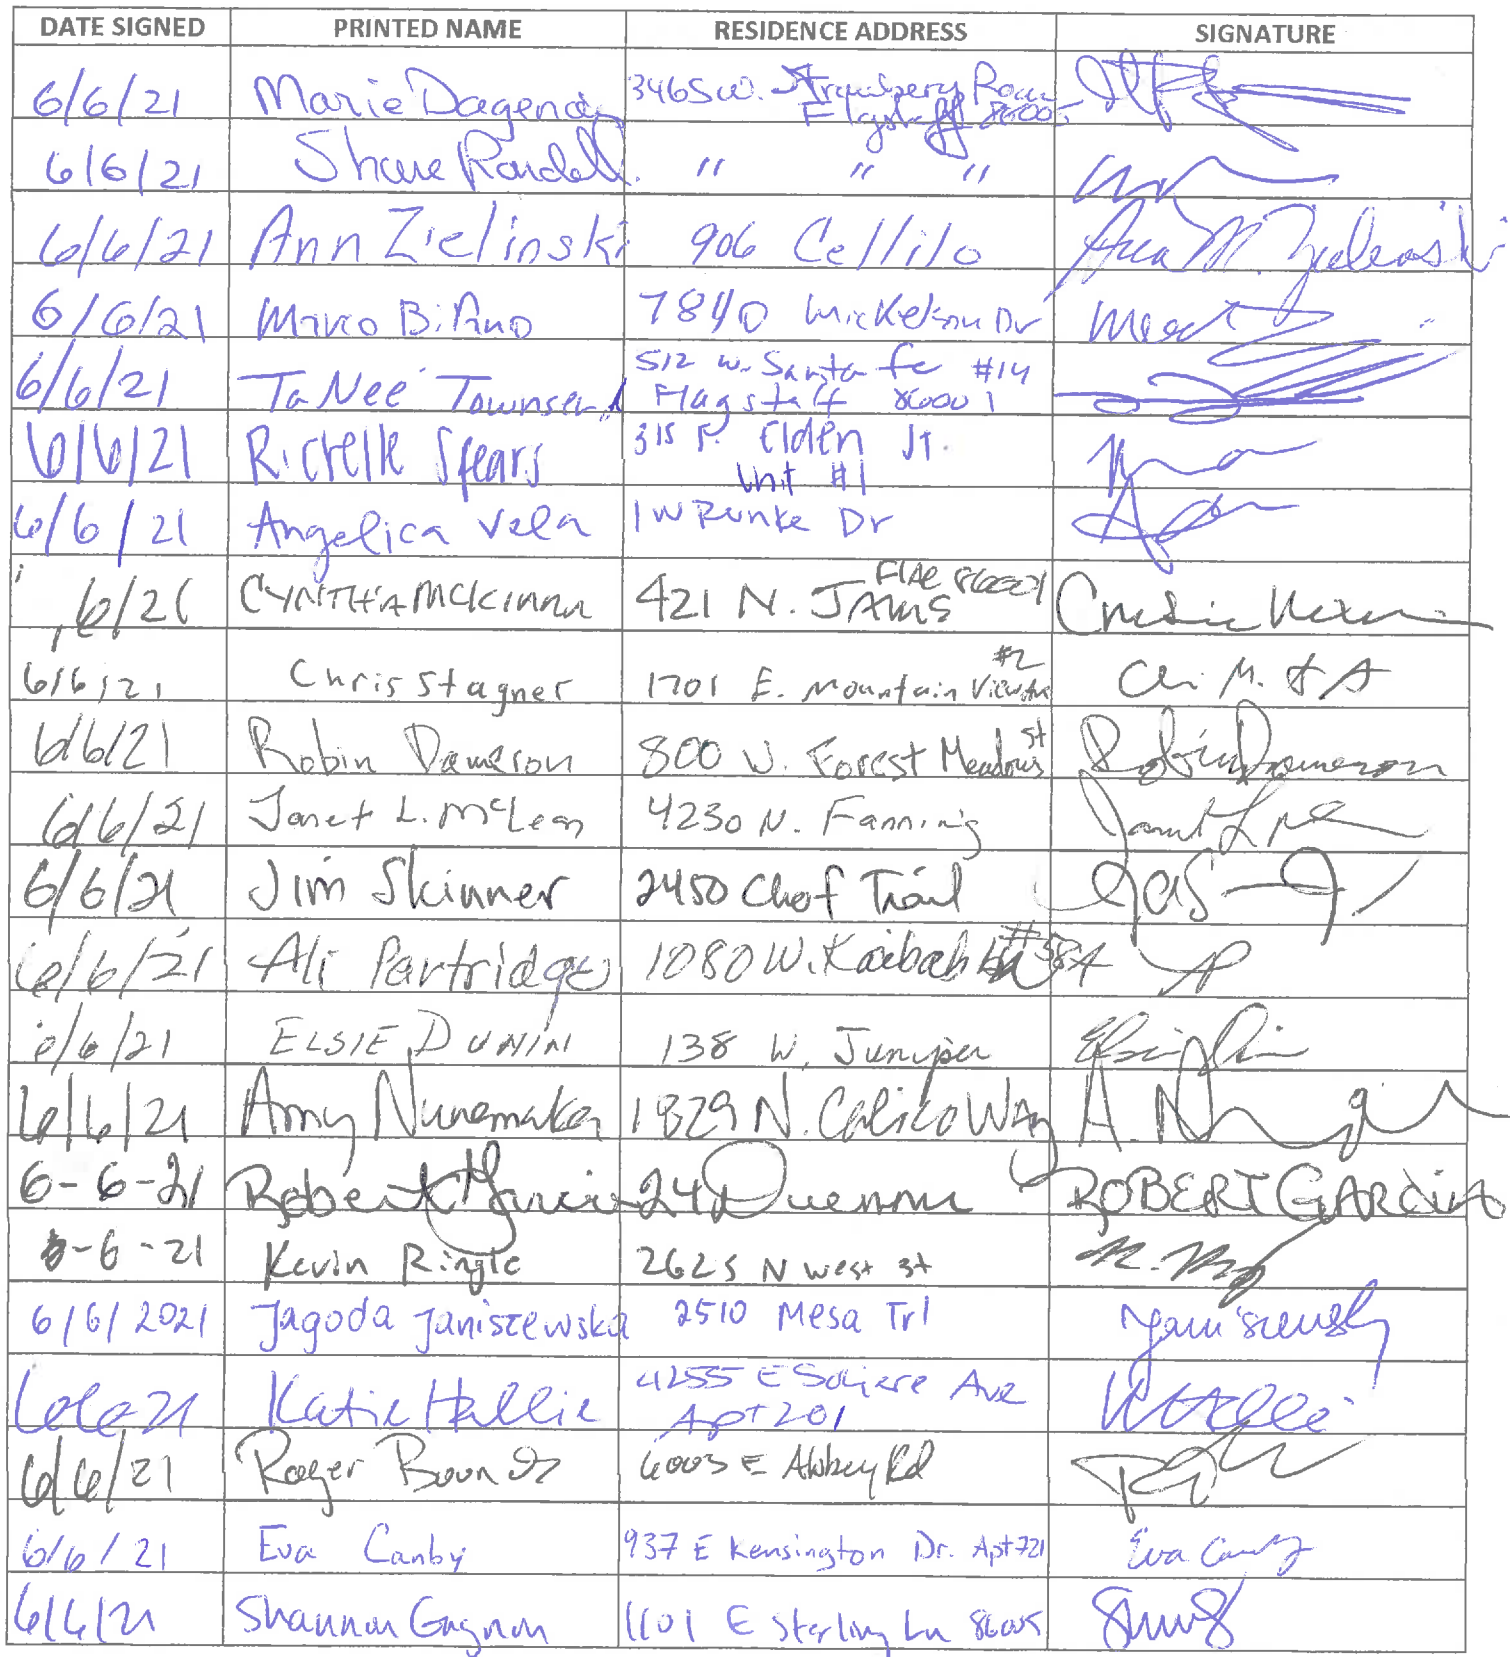 DATE SIGNED PRINTED NAME RESIDENCE ADDRESS SIGNATURE
6/6/21 Marie Dagenais 3465 W. Strawberry Roan
Flagstaff 86005
6/6/21 Shane Randall " " "
6/6/21 Ann Zielinski 906 Cellilo Ann M. Zielinski
6/6/21 Marco 7840 Mickelson Dr
6/6/21 TaNee Townsend 512 W. Santa fe #14
Flagstaff 86001
6/6/21 Richelle Spears 315 Elden St.
Unit #1
6/6/21 Angelica Vela 1 W Runke Dr
6/21 CYNTHIA McKinnn 421 N. JAMS
Chris Stagner 1701 E. Mountain View #2
6/6/21
6/6/21 Robin Dameron 800 W. Forest Meadows St Robin Dameron
6/6/21 Janet L. McLean 4230 N. Fanning
6/6/21 Jim Skinner 2450 Chof Trail
6/6/21 Ali Partridge 1080 W. Kaibab Ln #58A AP
6/6/21 ELSIE DUNIN 138 W. Juniper
6/6/21 Amy Nunemaker 1829 N. Calico Way
6-6-21 Robert Garcia 24 Duenna ROBERT GARCIA
6-6-21 Kevin Ringle 2625 N West St
6/6/2021 Jagoda Janiszewska 2510 Mesa Trl
6/6/21 Katie Hallie 4255 E Soliere Ave
Apt 201
6/6/21 Roger Bounds 6003 E Abbey Rd
6/6/21 Eva Canby 937 E Kensington Dr. Apt 721 Eva Canby
6/6/21 Shannon Gagnon 1101 E Sterling Ln 86005